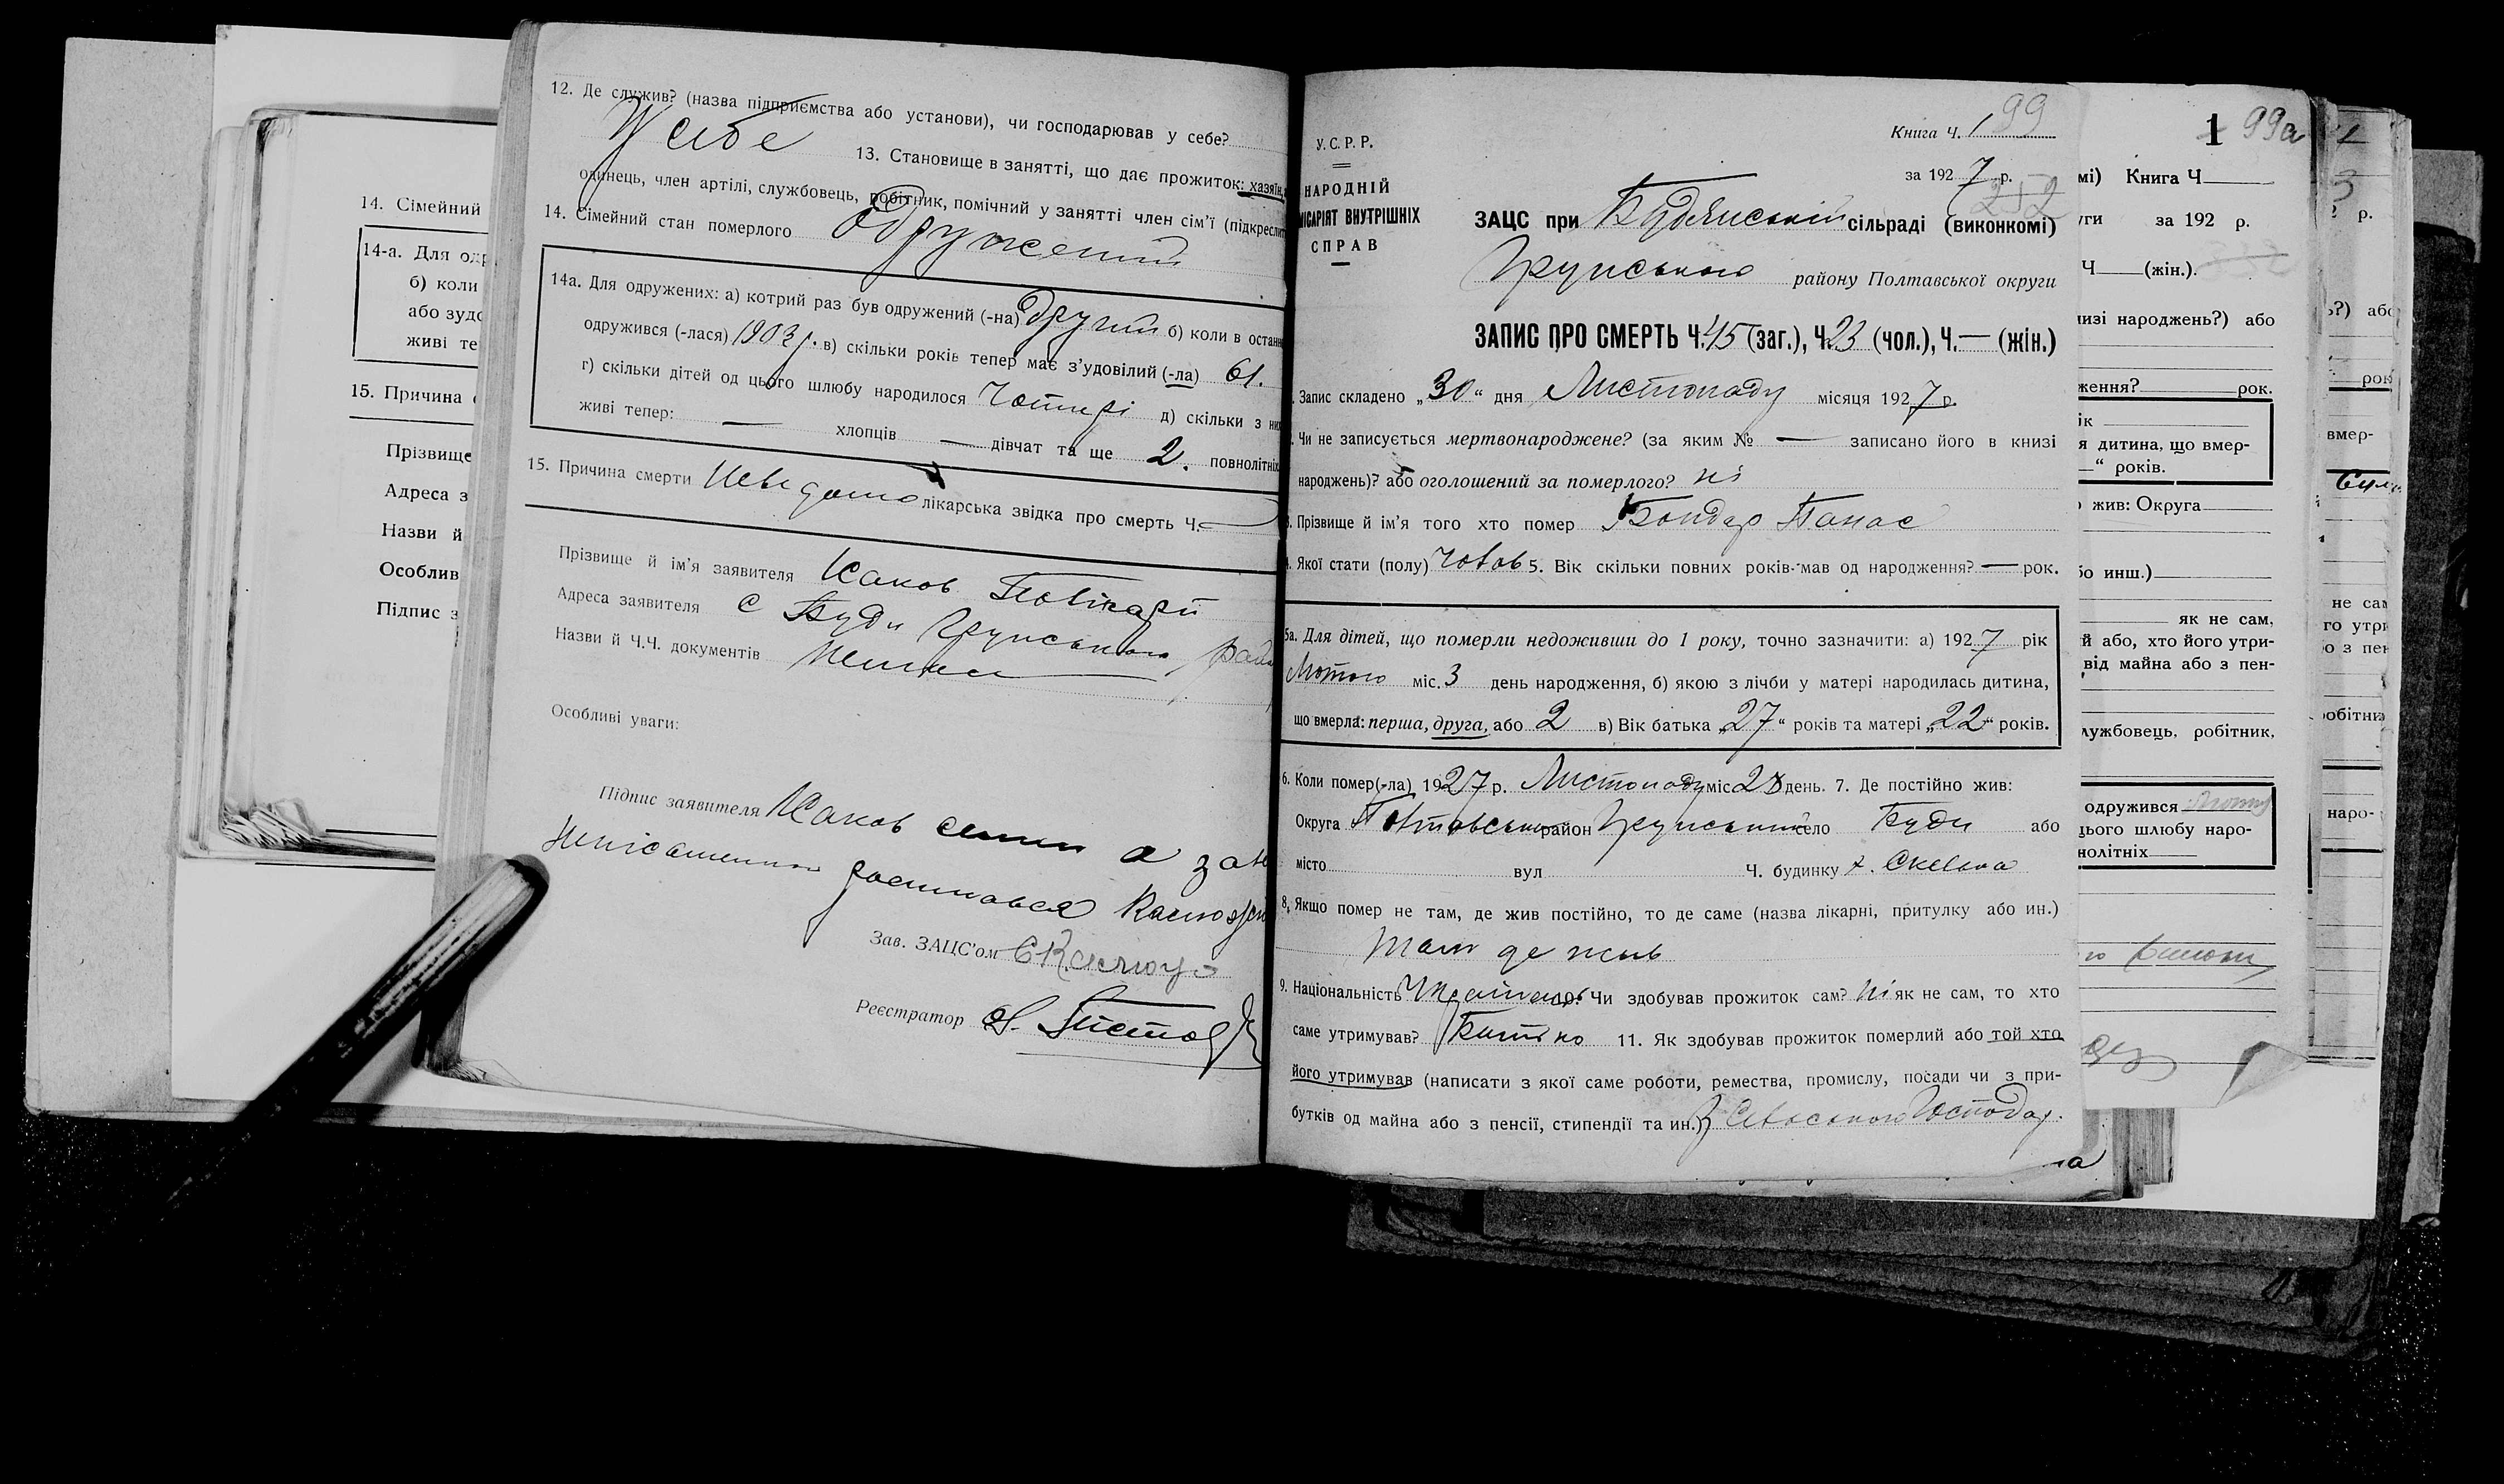 14. Сімейний
14-а. Для одр
б) коли
або зудо
живі те
15. Причина с
Прізвище
Адреса з
Назви й
Особлив
Підпис з
12. Де служив? (назва підприємства або установи), чи господарював у себе?
У себе 13. Становище в занятті, що дає прожиток: хазяїн,
одинець, член артілі, службовець, робітник, помічний у занятті член сім’ї (підкреслит
14. Сімейний стан померлого одружений
14а. Для одружених: а) котрий раз був одружений (-на) другий б) коли в останн
одружився (-лася) 1903 р. в) скільки років тепер має з’удовілий (-ла) 61.
г) скільки дітей од цього шлюбу народилося Чотирі д) скільки з них
живі тепер: — хлопців — дівчат та ще 2. повнолітніх
15. Причина смерти Невідомо лікарська звідка про смерть Ч. —
Прізвище й ім’я заявителя
Адреса заявителя с Буди Грунського рай
Назви й Ч.Ч. документів Немає
Особливі уваги:
Підпис заявителя а за
росписався
Зав. ЗАЦС’ом
Реєстратор
У.С.Р.Р.
НАРОДНІЙ
МІСАРІЯТ ВНУТРІШНІХ
СПРАВ
Книга Ч. 1 99
за 1927 р.
252
ЗАЦС при Будянській сільраді (виконкомі)
Грунського району Полтавської округи
ЗАПИС ПРО СМЕРТЬ Ч. 45 (заг.), Ч. 23 (чол.), Ч. — (жін.)
Запис складено „30“ дня Листопаду місяця 1927 р.
Чи не записується мертвонароджене? (за яким № — записано його в книзі
народжень)? або оголошений за померлого? ні
3. Прізвище й ім’я того хто помер Бондар Панас
Якої стати (полу) Чолов 5. Вік скільки повних років мав од народження? — рок.
5а. Для дітей, що померли недоживши до 1 року, точно зазначити: а) 1927 рік
Лютого міс. 3 день народження, б) якою з лічби у матері народилась дитина,
що вмерла: перша, друга, або 2 в) Вік батька „27“ років та матері „22“ років.
6. Коли помер(-ла) 1927 р. Листопаду міс 28 день. 7. Де постійно жив:
Округа Полтавська район Грунський село Буди або
місто вул Ч. будинку х.
8. Якщо помер не там, де жив постійно, то де саме (назва лікарні, притулку або ин.)
там де жив
9. Національність Чи здобував прожиток сам? Ні як не сам, то хто
саме утримував? Батько 11. Як здобував прожиток померлий або той хто
його утримував (написати з якої саме роботи, ремества, промислу, посади чи з при-
бутків од майна або з пенсії, стипендії та ин.) З Сільського Господар.
1 99а
мі) Книга Ч
уги за 192 р.
Ч (жін.).
изі народжень?) або
ження? рок.
ік
я дитина, що вмер-
“ років.
жив: Округа
бо инш.)
як не сам,
й або, хто його утри-
від майна або з пен-
лужбовець, робітник,
одружився
цього шлюбу наро-
нолітніх
р.
ь?) або
рок
вмер-
не сам
го утри
о з пен
робітни
наро-